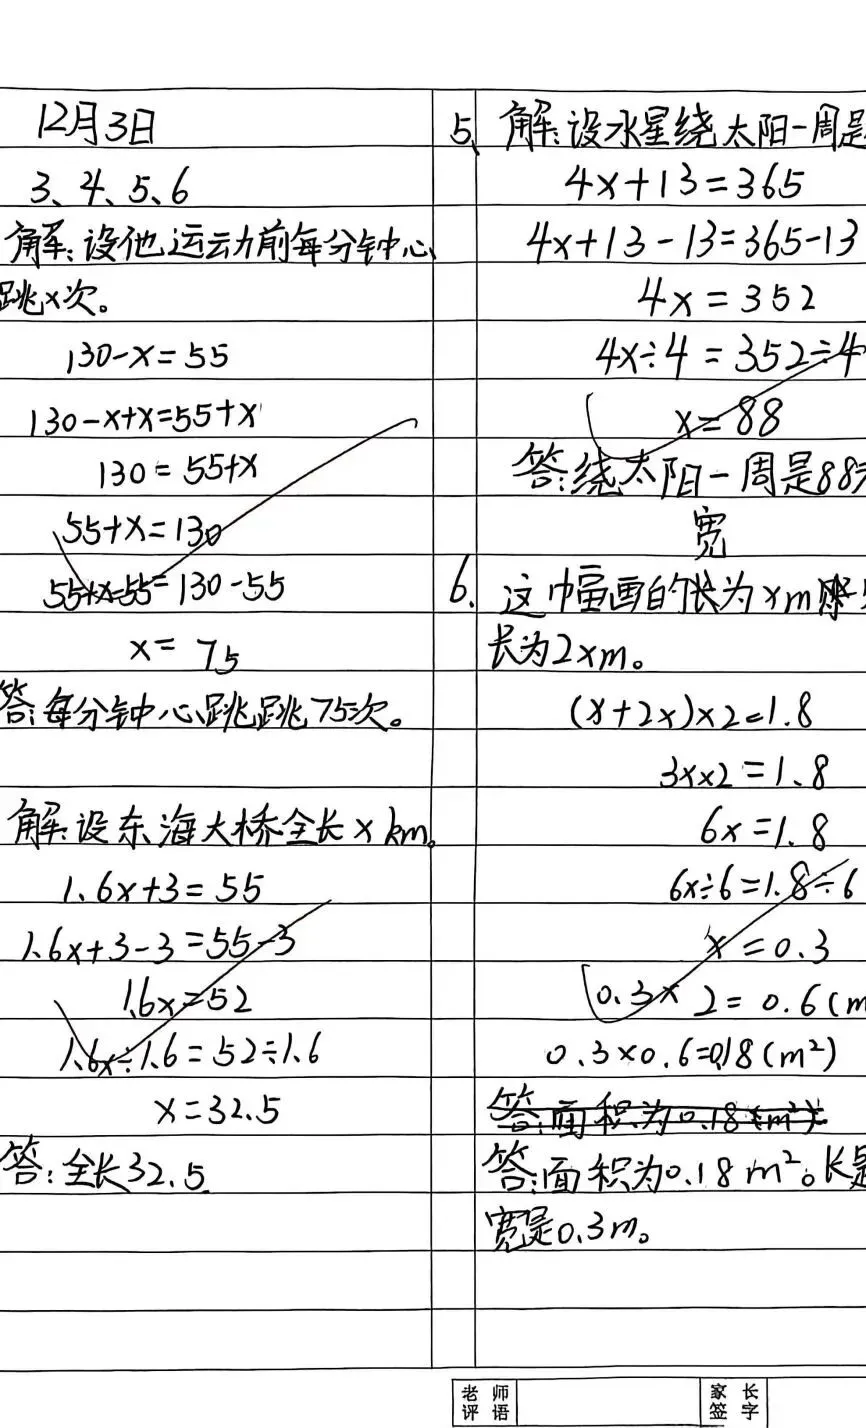 12月3日
3、4、5、6
解:设他运动前每分钟心
跳x次。
130-x=55
130-x+x=55+x
130=55+x
55+x=130
55+x-55=130-55
x=75
答:每分钟心跳跳75次。
解:设东海大桥全长xkm。
1.6x+3=55
1.6x+3-3=55-3
1.6x=52
1.6x÷1.6=52÷1.6
x=32.5
答:全长32.5
5、解:设水星绕太阳一周是
4x+13=365
4x+13-13=365-13
4x=352
4x÷4=352÷4
x=88
答:绕太阳一周是88天
宽
6.这巾畐画的长为xm
长为2xm。
(x+2x)×2=1.8
3x×2=1.8
6x=1.8
6x÷6=1.8÷6
x=0.3
0.3×2=0.6(m
0.3×0.6=0.18(m²)
答:面积为0.18(m²)
答:面积为0.18m²。长是
宽是0.3m。
老师
评语
家长
签字